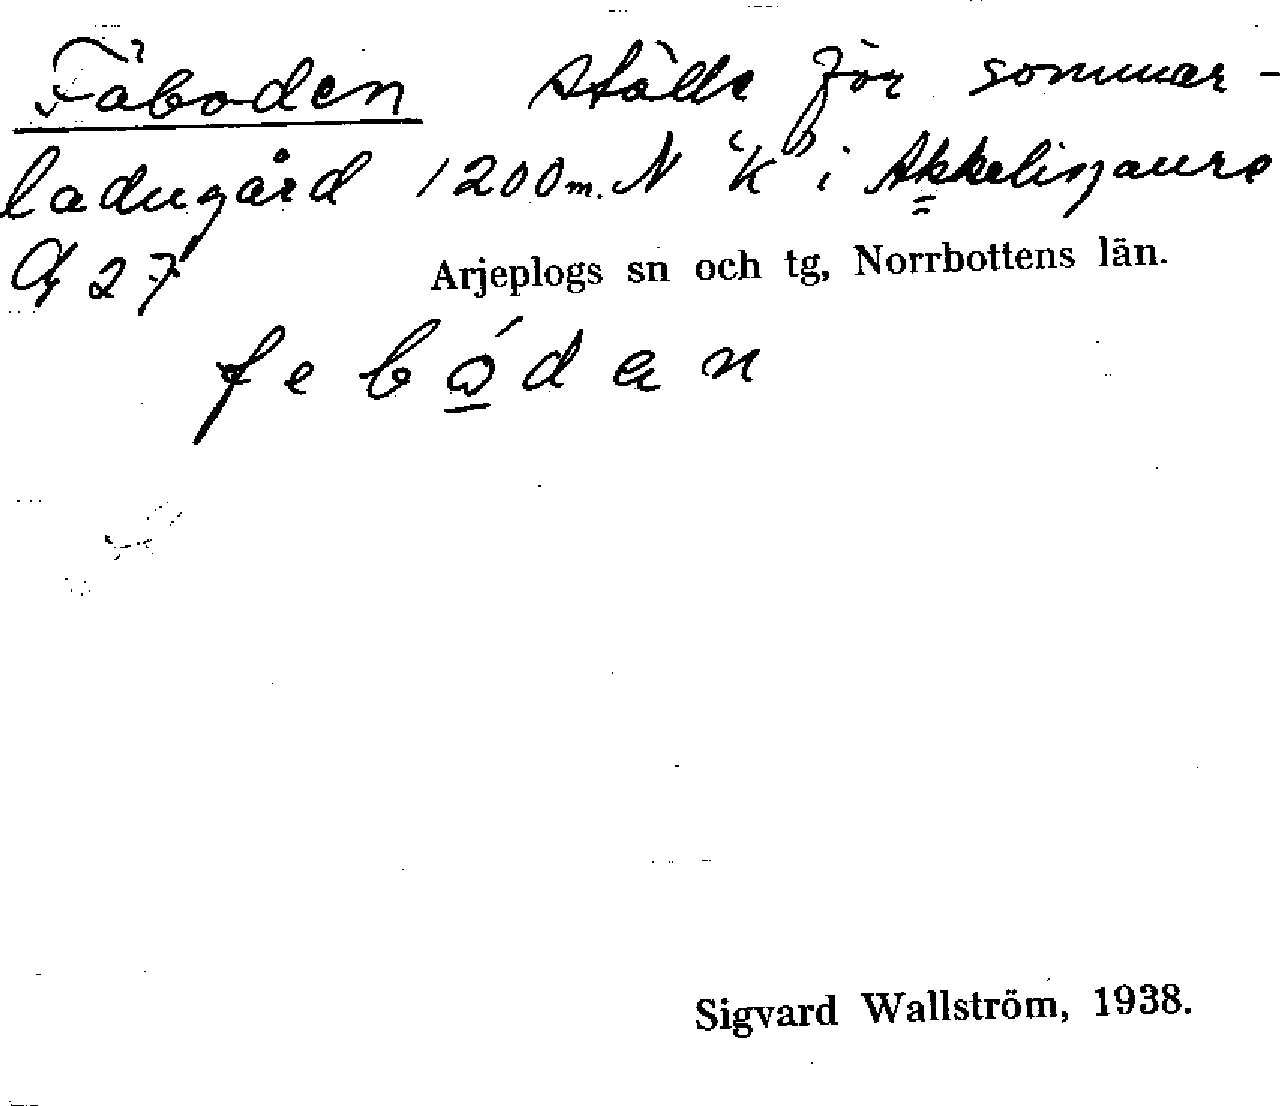 Fäboden ställe för sommar-
ladugård 1200m. N "k" i Akkelisjaure
27
Arjeplogs sn och tg, Norrbottens län.
feb
Sigvard Wallström, 1938.